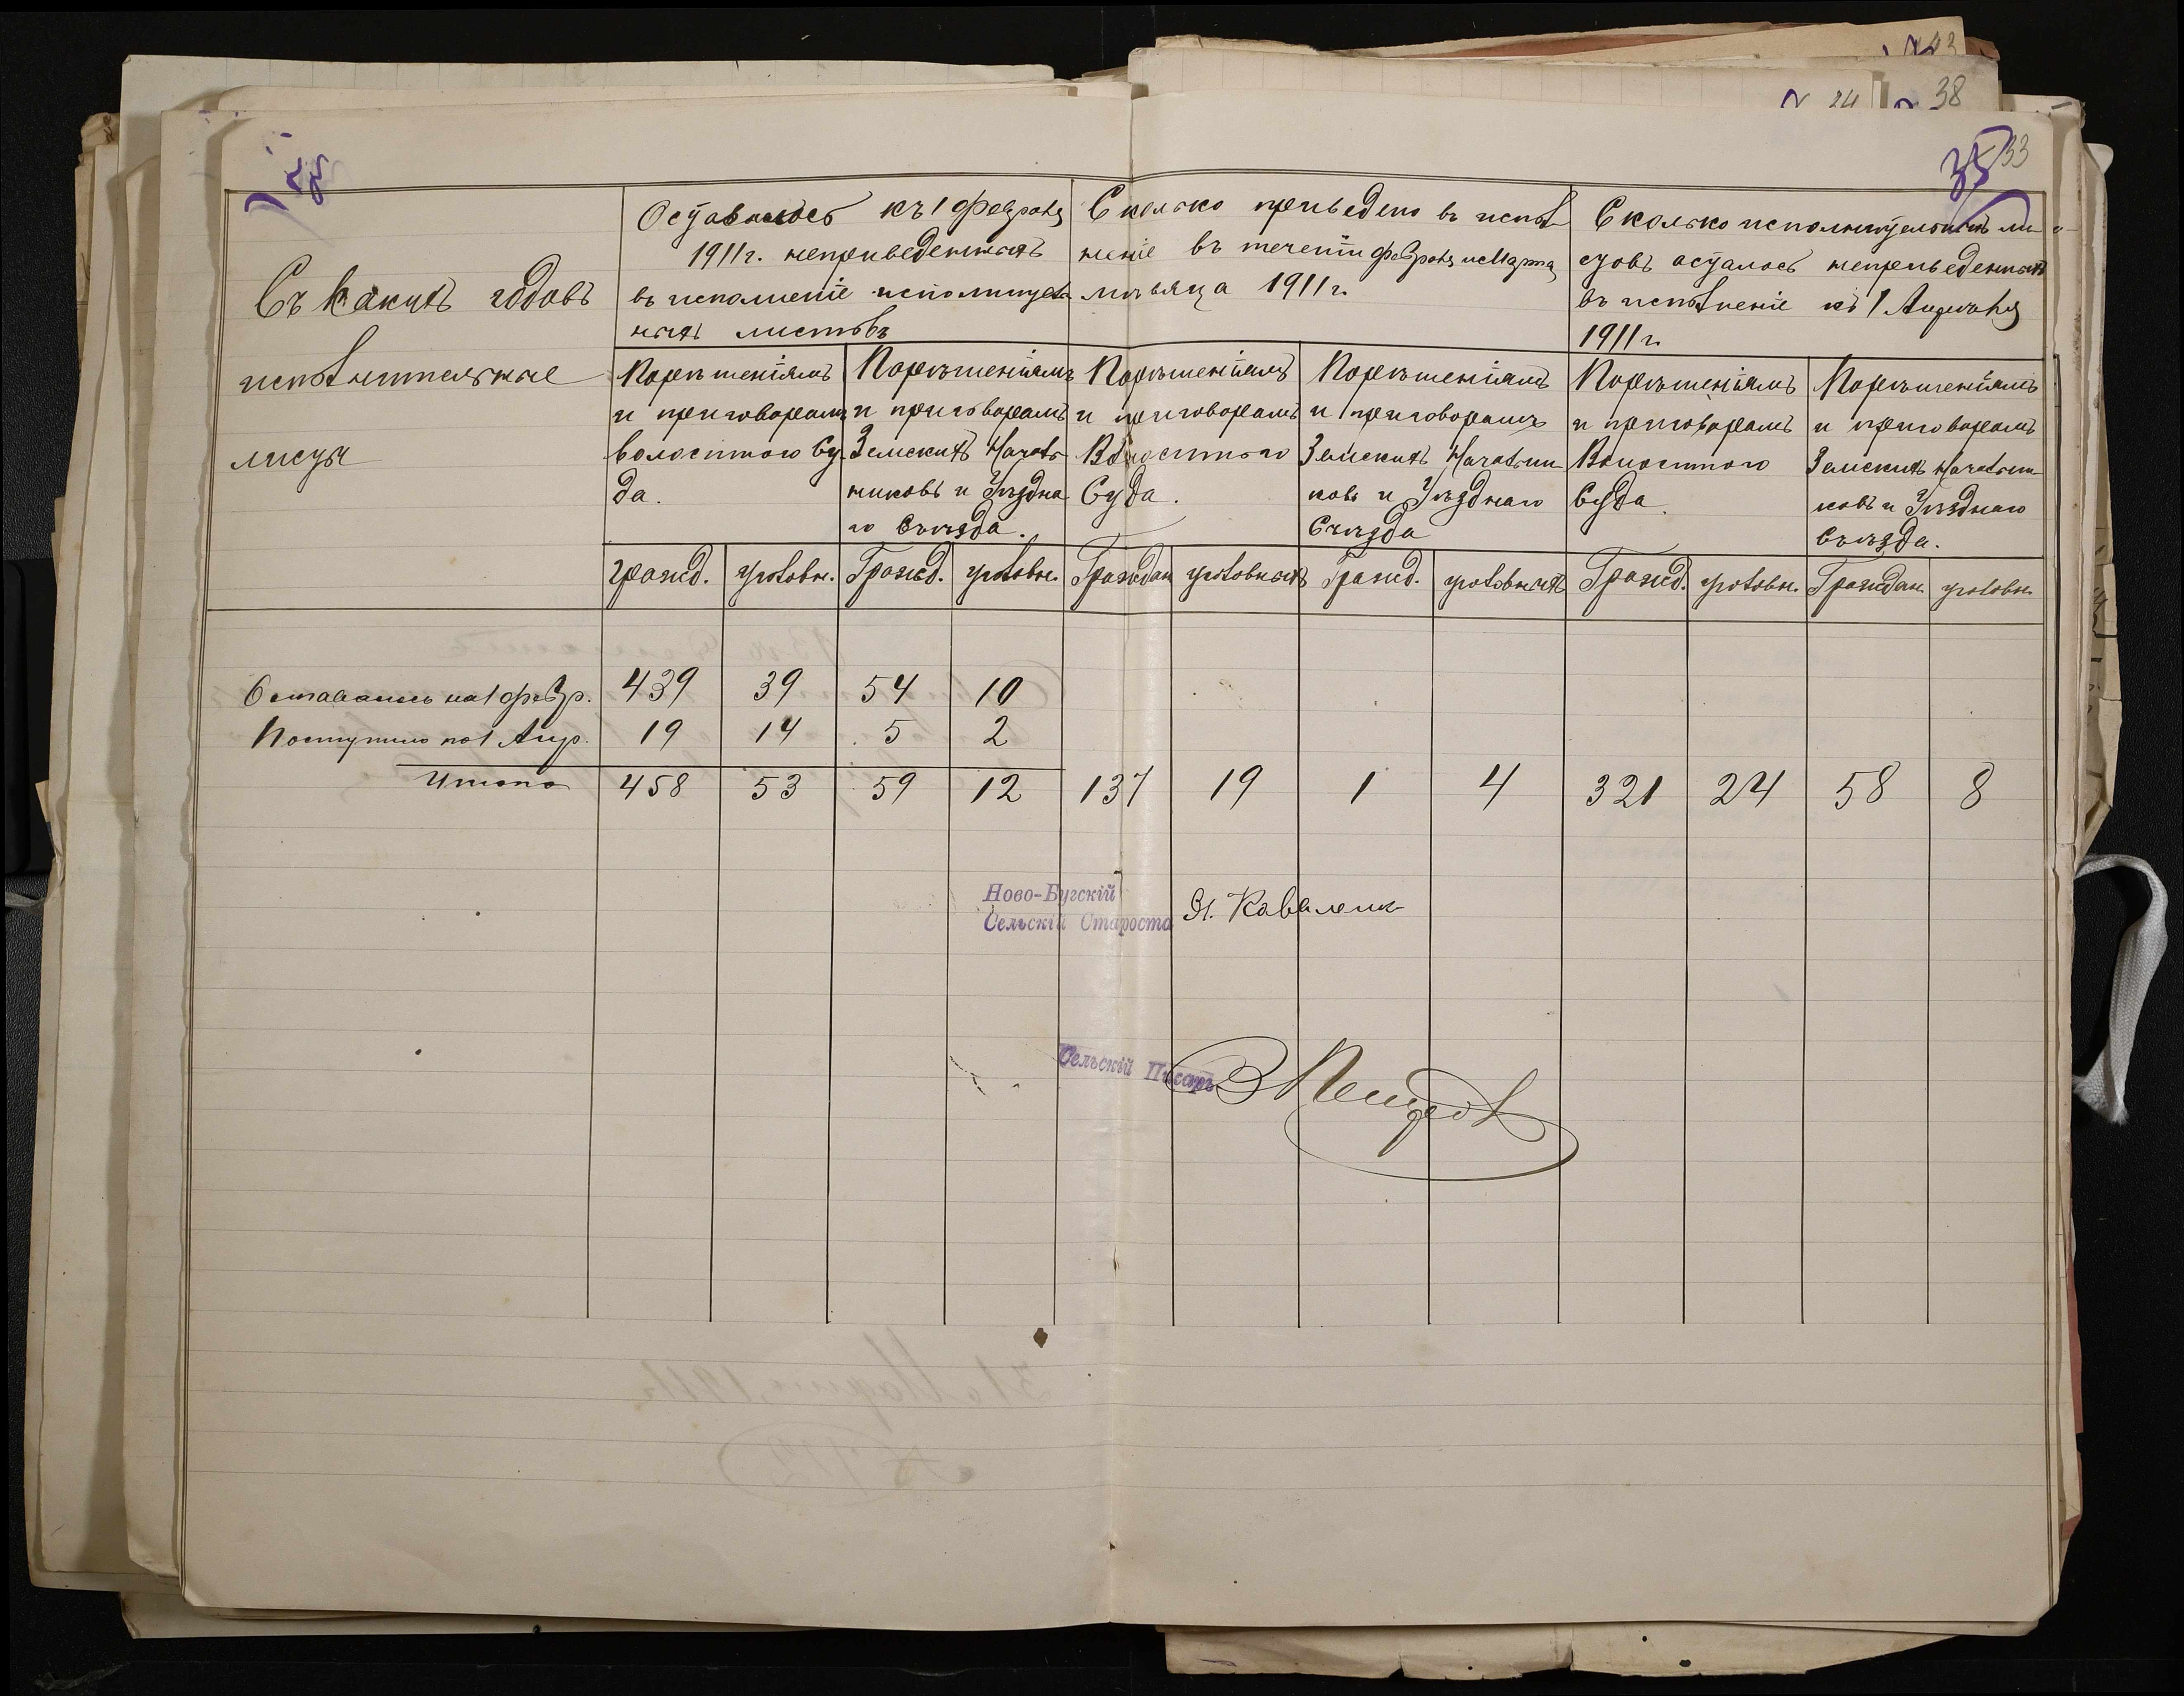 43
24
38
35 33
Съ какихъ годовъ
исполнительные
листы
Оставалось къ 1 февраля
1911 г. неприведенныхъ
въ исполненіе исполнитель
ныхъ листовъ
Сколько приведено въ испол
неніе въ теченіи февраля и Марта
мѣсяца 1911 г.
Сколько исполнительныхъ ли
стовъ осталось неприведенныхъ
въ исполненіе къ 1 Апрѣля
1911 г.
По рѣшеніямъ
и приговорамъ
волостного Су
да.
По рѣшеніямъ
и приговорамъ
Земскихъ Началь
никовъ и Уѣздна
го Съѣзда.
По рѣшеніямъ
и приговорамъ
Волостного
Суда.
По рѣшеніямъ
и приговорамъ
Земскихъ Начальни
ковъ и Уѣзднаго
Съѣзда
По рѣшеніямъ
и приговорамъ
Волостного
Суда.
По рѣшеніямъ
и приговорамъ
Земскихъ Начальни
ковъ и Уѣзднаго
Съѣзда.
гражд. уголовн. Гражд. уголовн. Граждан уголовныхъ Гражд. уголовныхъ Гражд. уголовн. Граждан. уголовн.
Оставалось на 1 февр. 439 39 54 10
Поступило по 1 Апр. 19 14 5 2
Итого 458 53 59 12 137 19 1 4 321 24 58 8
Ново-Бугскій
Сельскій Староста Коваленк
Сельскій Писарь